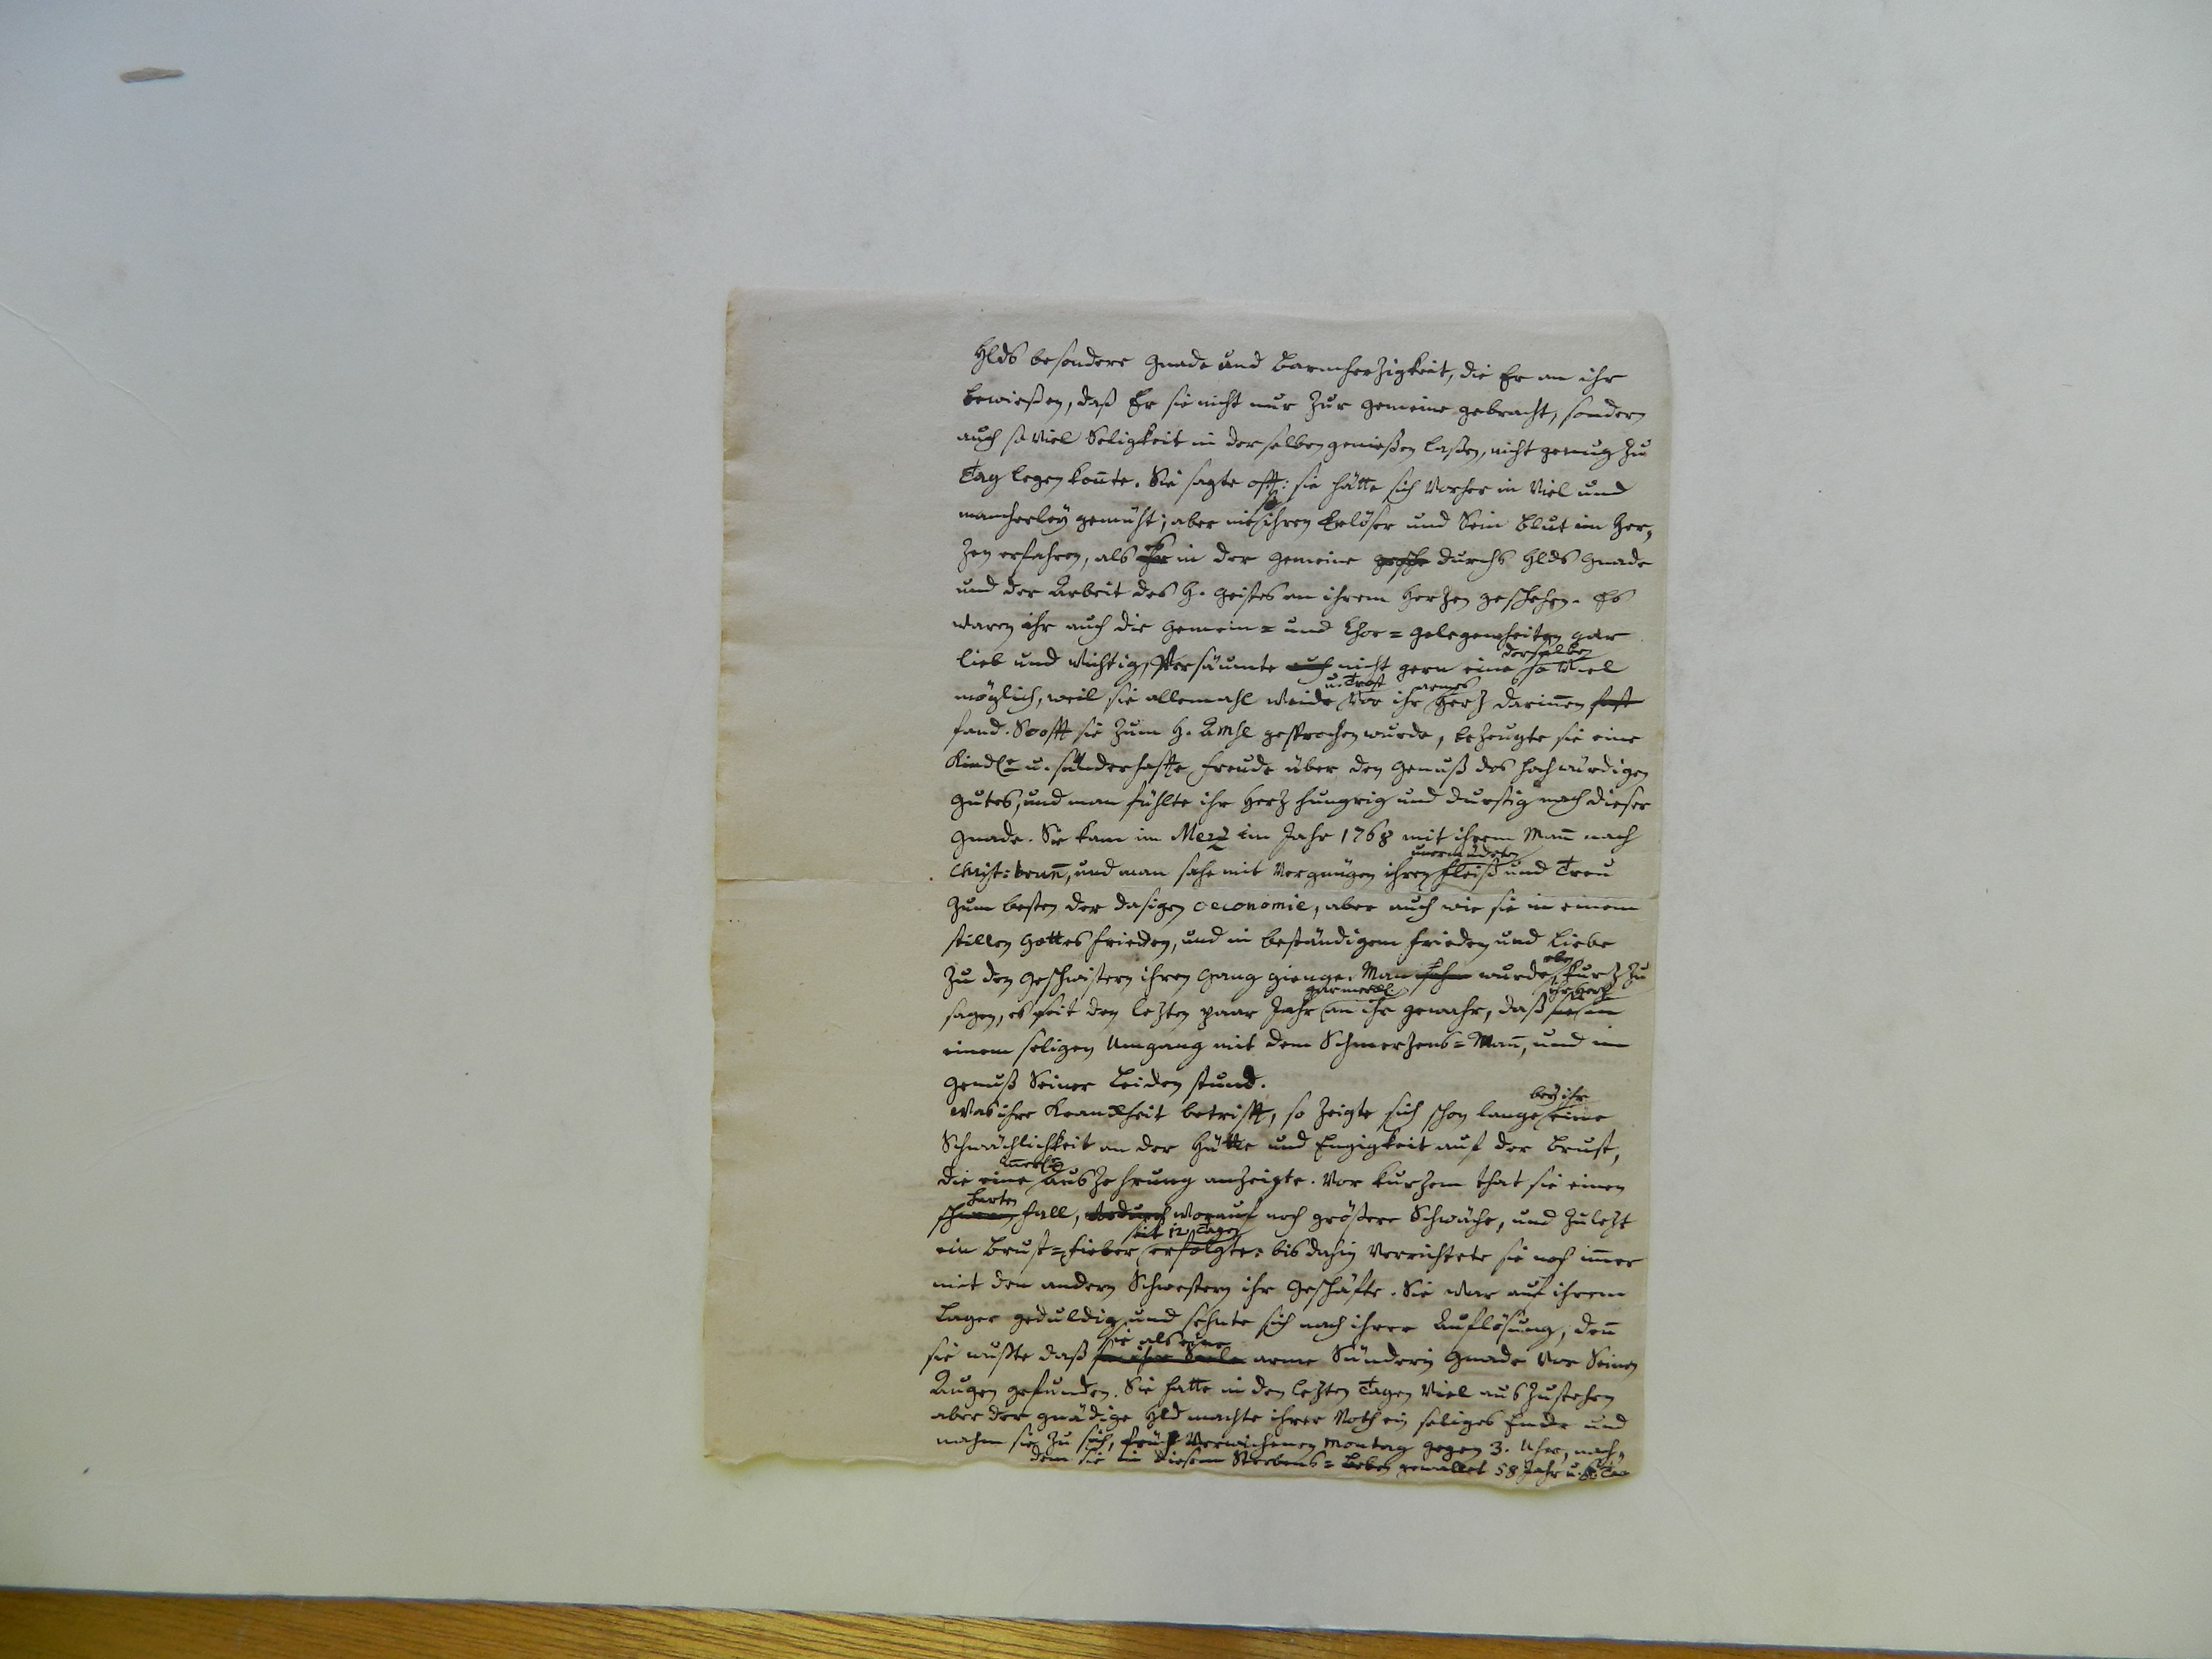 Hlds besondere Gnade und Barmherzigkeit, die Er an ihr
bewießen, daß Er sie nicht nur zur Gemeine gebracht, sondern
auch so viel Seligkeit in derselben genießen laßen, nicht genug zu
Tag legen konnte. Sie sagte oft: sie hätte sich vorher in viel und
mancherley gemüht; aber nie so ihren Erlöser und Sein Blut im Her,
zen erfahren, als es in der Gemeine durchs Hlds Gnade
und der Arbeit des H. Geistes an ihrem Herzen geschehen. Es
waren ihr auch die Gemein= und Chor=Gelegenheiten gar
lieb und wichtig, versäumte auch nicht gern eine derselben so viel
möglich, weil sie allemahl Weide u. Trost vor ihr armes Herz darinnen fast
fand. So oft sie zum H. Abmhl gesprochen wurde, bezeugte sie eine
Kindl. u. sünderhafte Freude über den Genuß des hochwürdigen
Gutes, und man fühlte ihr Herz hungrig und durstig nach dieser
Gnade. Sie kam im Merz im Jahr 1768 mit ihrem Mann nach
Christ:brunn, und man sahe mit Vergnügen ihren unermüdeten Fleiß und Treu
zum besten der dasigen oeconomie, aber auch wie sie in einem
stillen Gottes Frieden, und in beständigem Frieden und Liebe
zu den Geschwistern ihren Gang gienge. Man sahe wurde, eben kurz zu
sagen, es seit den lezten paar Jahr an ihr gewahr, daß ihr Herz sie in
einem seligen Umgang mit dem Schmerzens=Mann, und im
Genuß Seiner Leiden stund.
Was ihre Krankheit betrifft, so zeigte sich schon lange bey ihr eine
Schwächlichkeit an der Hütte und Engigkeit auf der Brust,
die eine Auszehrung anzeigte. Vor kurzem that sie einen
harten Fall, wodurch worauf noch größere Schwäche, und zulezt
ein Brust=Fieber seit 12 Tagen erfolgte: bis dahin verrichtete sie noch immer
mit den andern Schwestern ihr Geschäfte. Sie war auf ihrem
Lager geduldig und sehnte sich nach ihrer Auflösung, denn
sie wußte daß sie als eine arme Sünderin Gnade vor Seinen
Augen gefunden. Sie hatte in den lezten Tagen viel auszustehen
aber der gnädige Hld machte ihrer Noth ein seliges Ende und
nahm sie zu sich, früh verwichenen Montag gegen 3. Uhr, nach,
dem sie in diesem Sterbens=Leben gewallet 58 Jahr u.